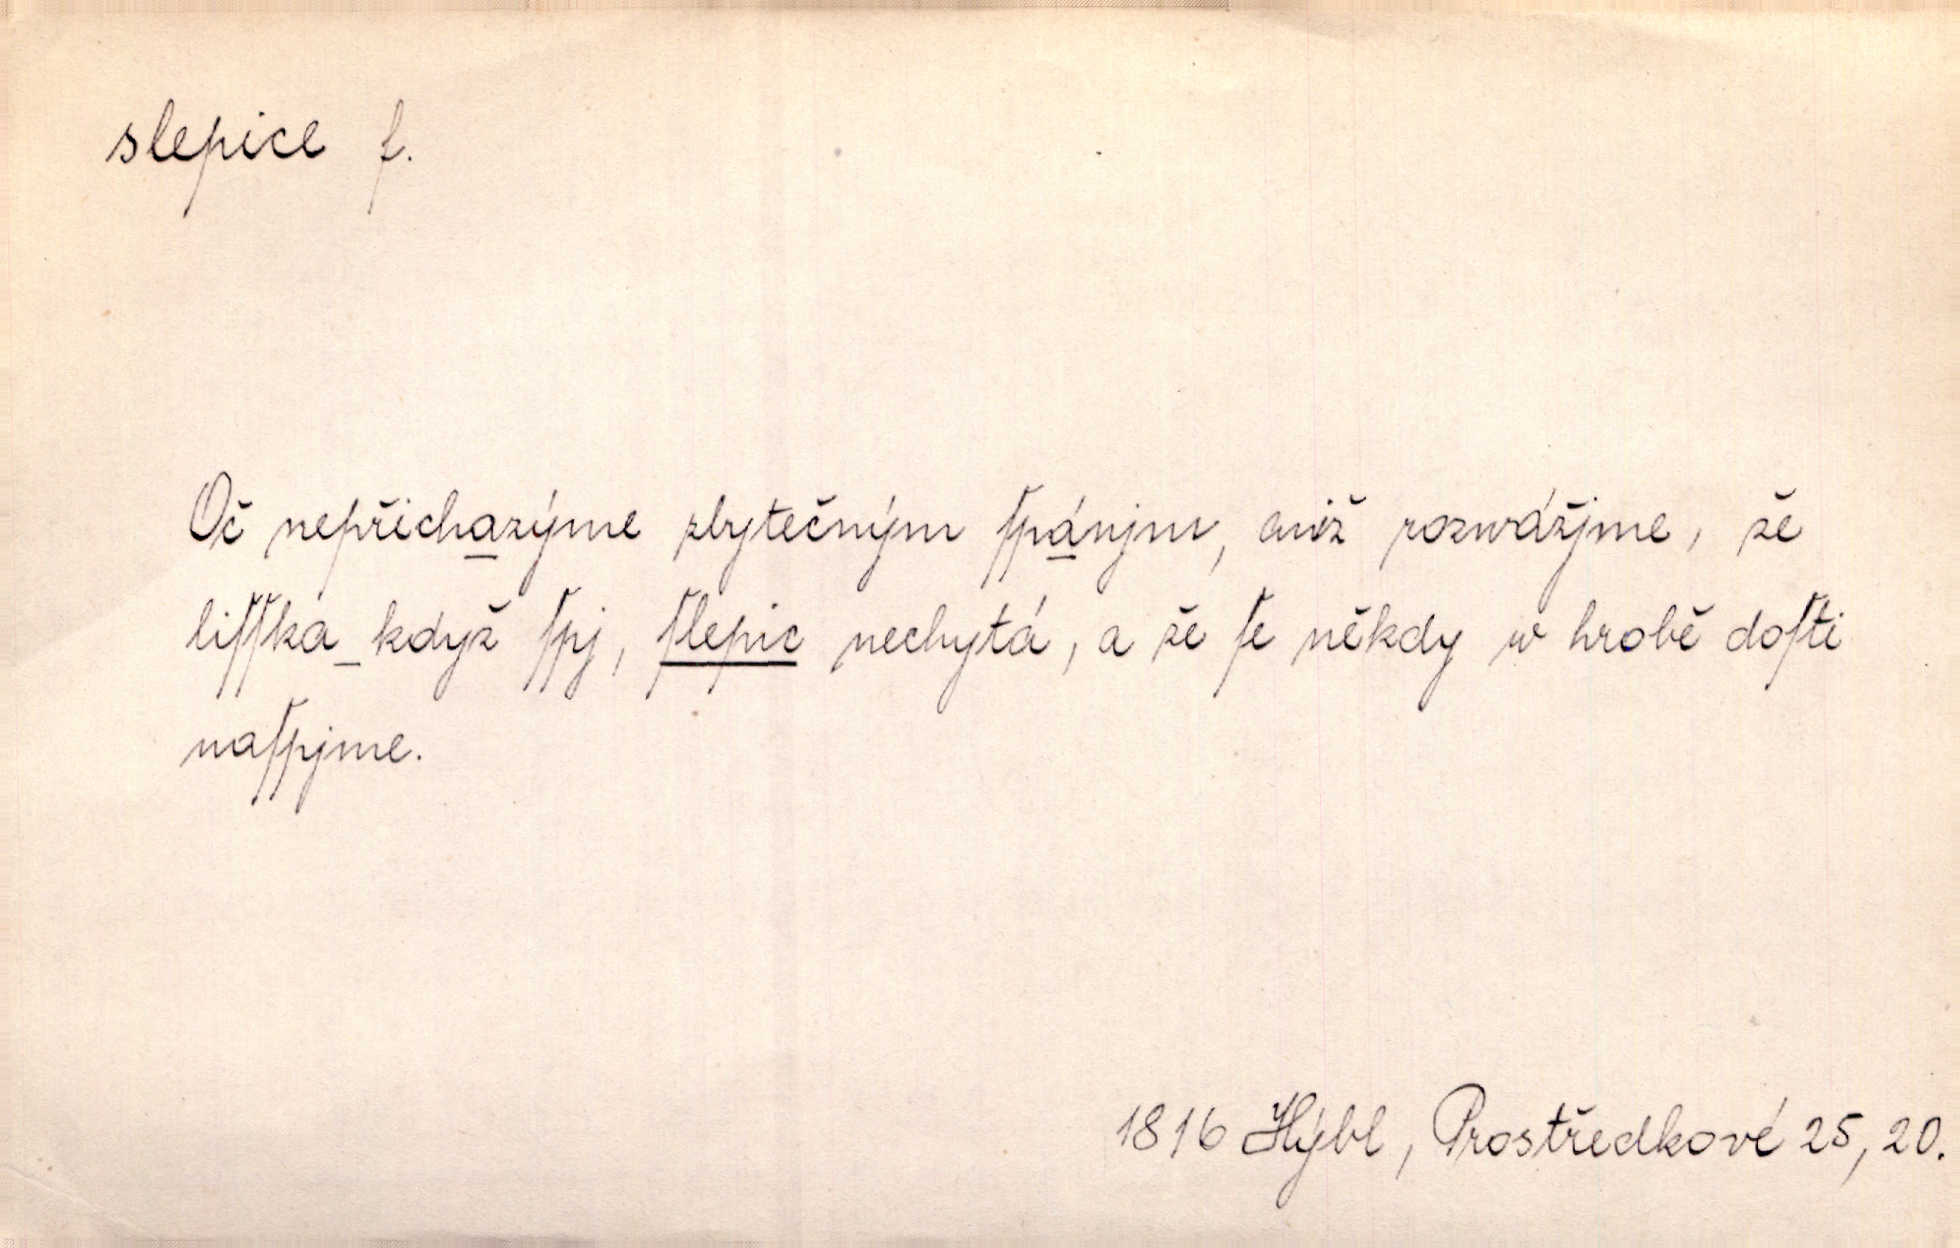 slepice f.
Oč nepřichazýme zbytečným ſpánjm, aniž rozwážjme, že
liſſka_když ſpj, ſlepic nechytá, a že ſe někdy w hrobě doſti
naſpjme.
1816 Hýbl, Prostředkové 25, 20.